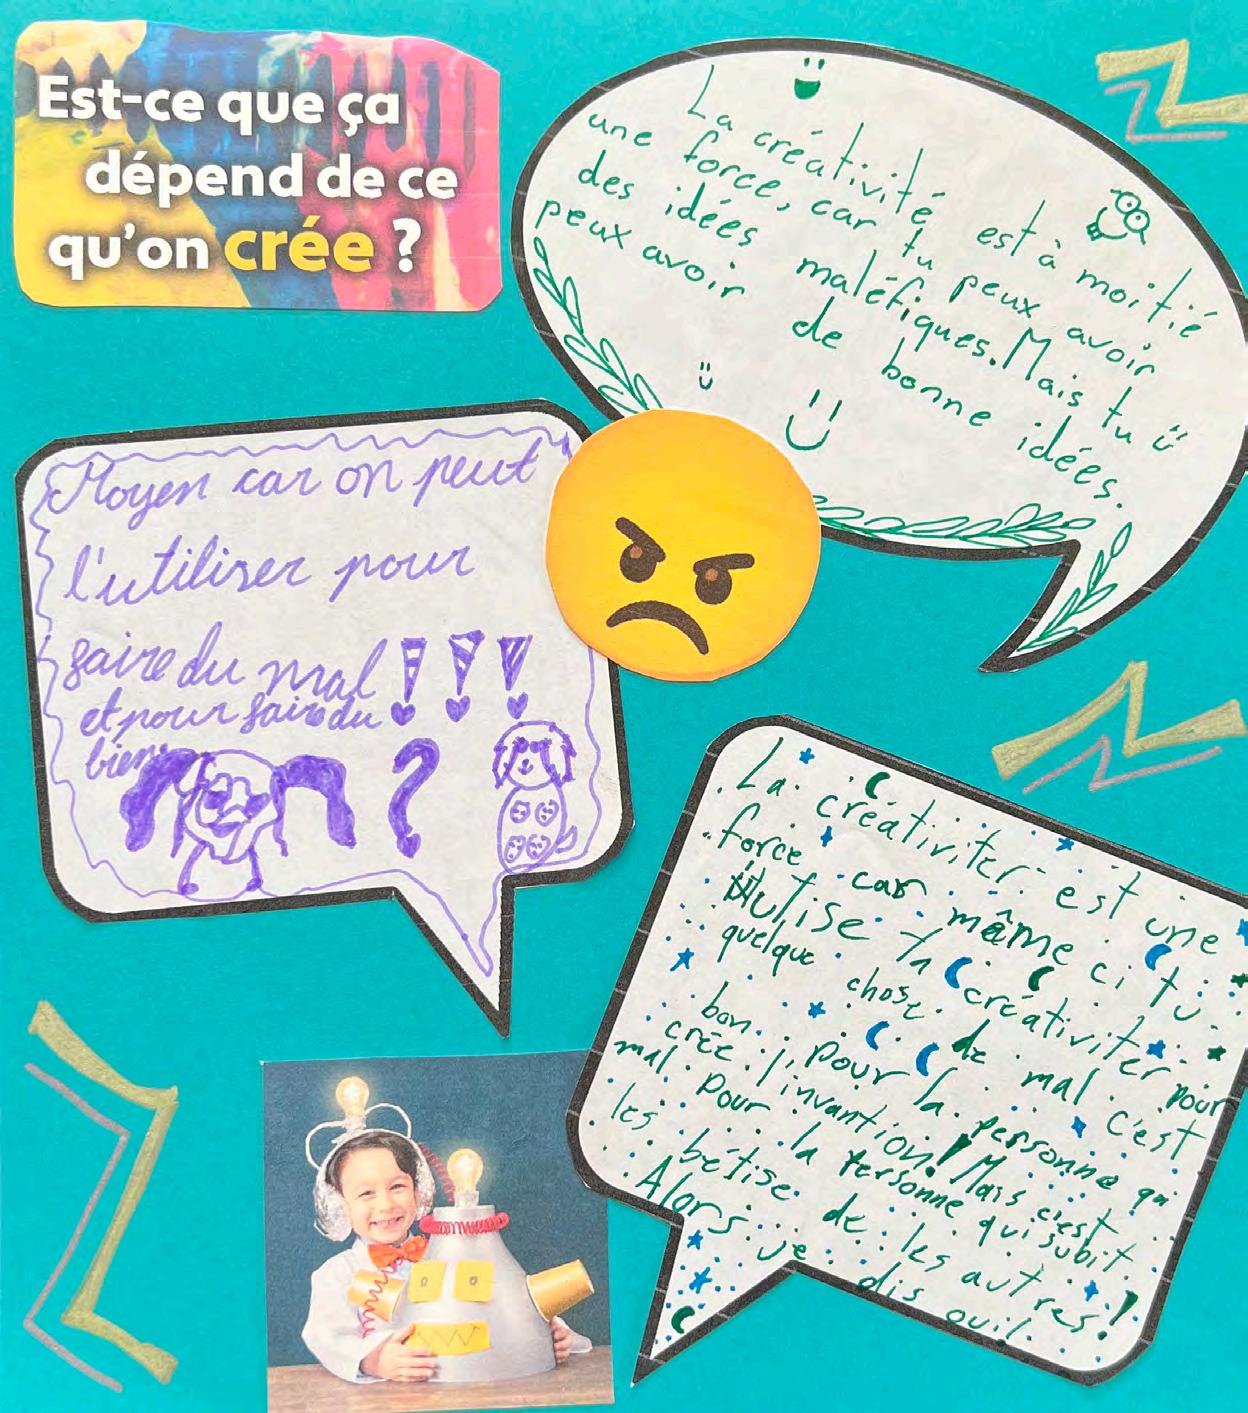 Est-ce que ça
dépend de ce
qu'on crée ?
La créativité est à moitié
une force, car tu peux avoir
des idées maléfiques. Mais tu
peux avoir de bonne idées.
Moyen car on peut
l'utiliser pour
faire du mal !!!
et pour faire du
bien
?
La créativiter est une
force car même ci tu
utilise ta créativiter pour
quelque chose de mal c'est
bon pour la personne qui
crée l'invantion! Mais c'est
mal pour la personne qui subit
les bétise de les autres!
Alors je dis oui!